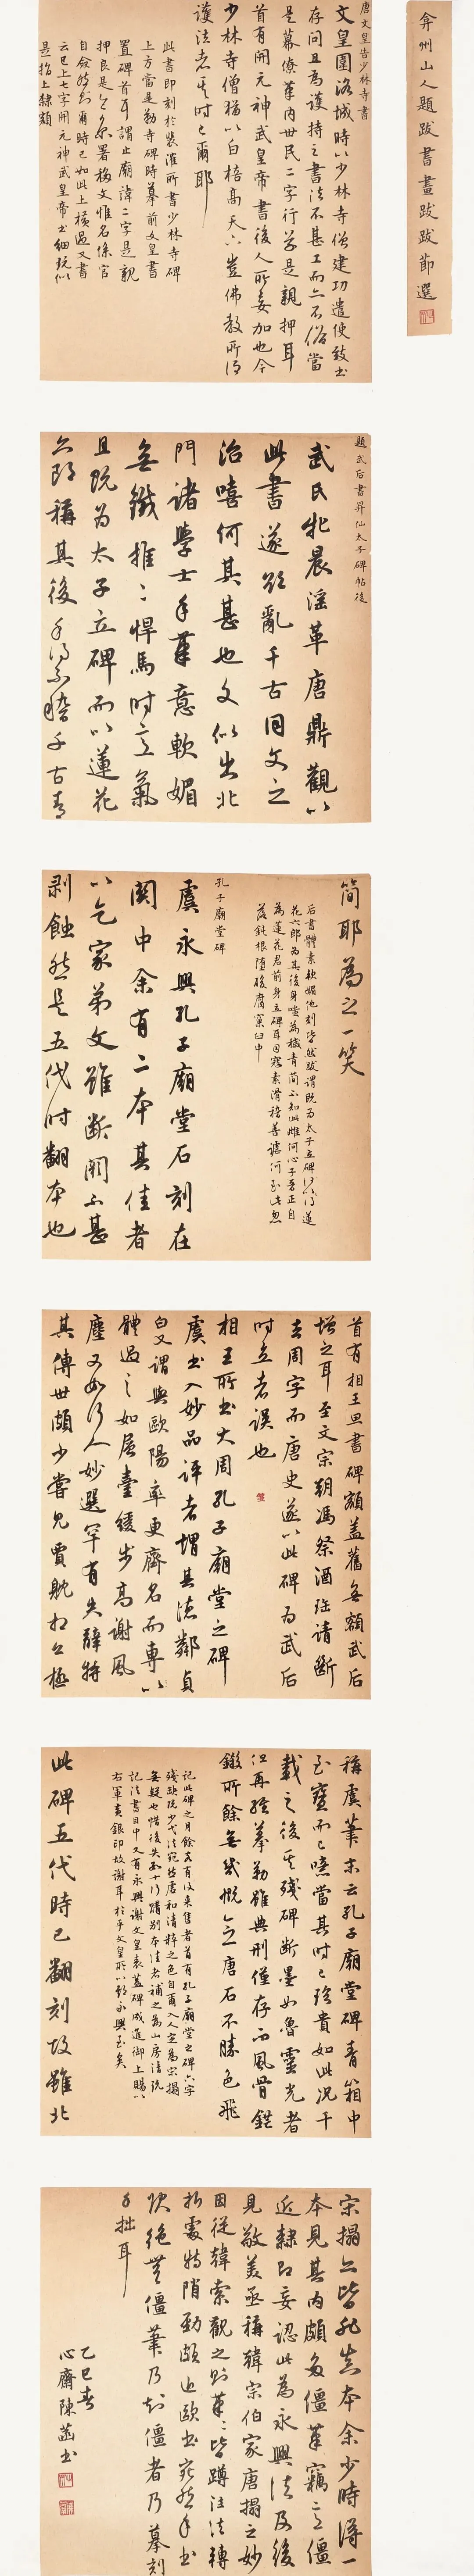 弇州山人題跋書畫跋跋節選
唐文皇告少林寺書
文皇圍洛城時以少林寺僧建功遣使致書
存問且為護持之書法不甚工而亦不俗當
是幕僚筆內世民二字行草是親押耳
首有開元神武皇帝書後人所妄加也今
少林寺僧猶以白棓高天下豈佛教所謂
護法者耶時已爾耶
此書即刻於裴漼所書少林寺碑
上方當是勒寺碑時摹前文皇書
置碑首耳謂止廟諱二字是親
押良是
自
云已上七字開元神武皇帝書細玩似
是指上隸額
題武后書昇仙太子碑帖後
武氏牝晨淫革唐鼎觀以
此書遂欲亂千古同文之
治嘻何其甚也文似出北
門諸學士手筆意軟媚
無鐵推推悍馬時意氣
且既為太子立碑而以蓮花
六郎稱其後身不穢千古青
簡耶為之一笑
后書體素軟媚他刻皆然跋謂既為太子立碑何得以蓮
花六郎為其後身
為蓮花君前身立碑耳因寇素滑稽善謔何至此忽
落鈍根墮酸腐窠臼中
孔子廟堂碑
虞永興孔子廟堂石刻在
關中余有二本其佳者
以乞家弟文雖斷闕不甚
剝蝕然是五代時翻本也
首有相王旦書碑額蓋舊無額武后
增之耳至文宗朝馮祭酒珎請斷
去周字而唐史遂以此碑為武后
時立者誤也
相王所書大周孔子廟堂之碑
虞書入妙品評者謂其德鄰貞
白又謂與歐陽率更齊名而專以
體過之如層臺緩步高謝風
塵又如行人妙選罕有失辭特
其傳世頗少嘗見賈耽相公極
稱虞筆末云孔子廟堂碑青箱中
至寶而已噫當其時已珍貴如此況千
載之後其殘碑斷墨如魯靈光者
但再經摹勒雖典刑僅存而風骨銷
鑠所餘無幾慨念唐石不勝色飛
記此碑之月餘又有以來售者首有孔子廟堂之碑六字
殘缺既少波法宛然唐和清粹之色自爾入人定為宋搨
無疑也惜後失五十行購別本佳者補之為山房法玩
記法書目中又有永興謝文皇表蓋碑成進御上賜以
右軍黃銀印故謝耳於乎文皇所以酬永興至矣
此碑五代時已翻刻故雖北
宋搨亦皆非真本余少時得一
本見其內頗多僵筆竊意僵
近隸即妄認此為永興法及後
見敬美亟稱韓宗伯家唐搨之妙
因從韓索觀之則筆筆皆蹲注法轉
折處特陗勁頗近歐書宛然手書
決絕無僵筆乃知僵者乃摹刻
手拙耳
乙巳春
心齋陳菡書